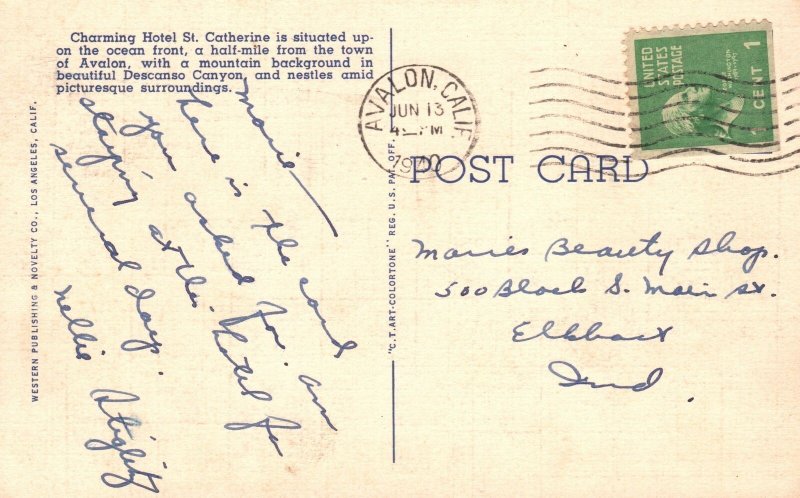 Charming Hotel St. Catherine is situated up-
on the ocean front, a half-mile from the town
of Avalon, with a mountain background in
beautiful Descanso Canyon, and nestles amid
picturesque surroundings.
WESTERN PUBLISHING & NOVELTY CO., LOS ANGELES, CALIF.
Marie —
here is the card
you asked for, am
staying at this hotel for
several days.
Nellie
"C.T. ART-COLORTONE" REG. U.S. PAT. OFF.
AVALON, CALIF.
JUN 13
4 PM
1940
UNITED
STATES
POSTAGE
1
CENT
POST CARD
Maries Beauty Shop.
500 Block S. Main St.
Elkhart
Ind.